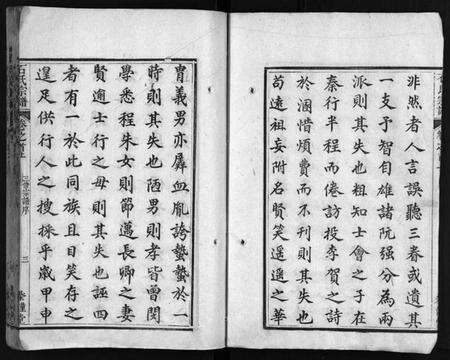 非然者人言誤聽三春或遺其
一支予智自雄諸阮强分為兩
派則其失也粗知士會之子在
秦行半程而倦訪投李賀之詩
於溷惜煩費而不刊則其失也
苟遠祖妄附名賢笑遥遥之華
胄義男亦孱血胤誇蟄蟄於一
時則其失也陋男則孝皆曾閔
學悉程朱女則節邁長卿之妻
賢逾士行之母則其失也誣四
者有一於此同族且目笑存之
遑足供行人之搜採乎歲甲申
石氏宗譜
三